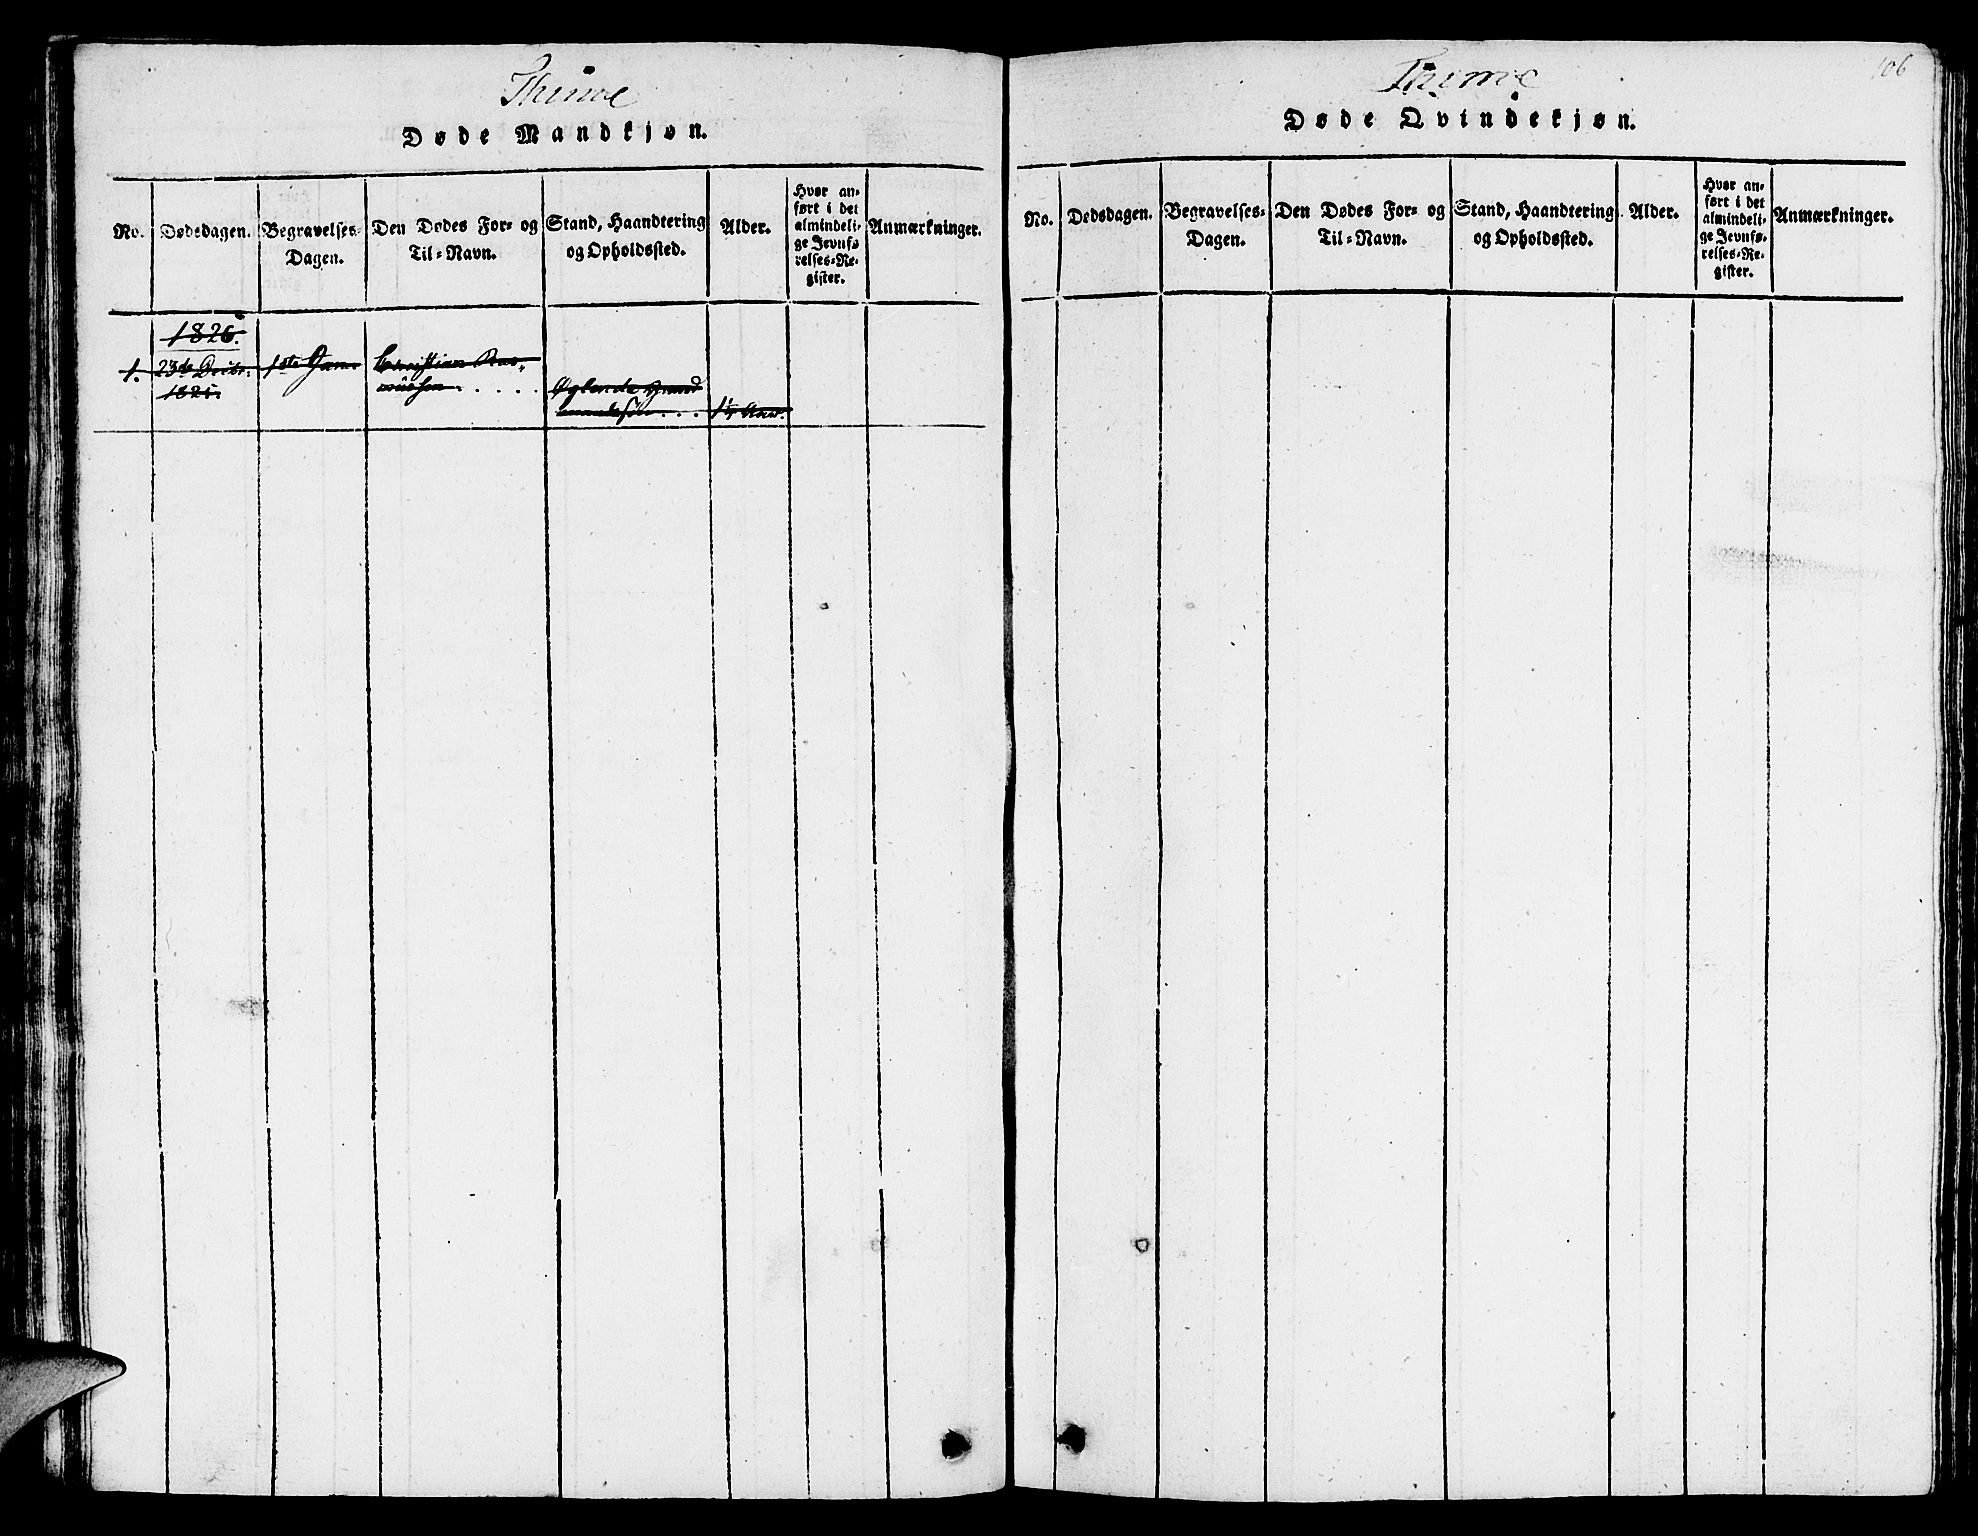 Thime
Døde Mandkjøn.
No.
Dødsdagen.
Begravelses-
Dagen.
Den Dødes For- og
Til-Navn.
Stand, Haandtering
og Opholdssted.
Alder.
Hvor an-
ført i det
almindeli-
ge Jevnfø-
relses-Re-
gister.
Anmærkninger.
1826.
1.
23de Decbr.
1825.
1ste Jan.
Christian Ras-
mussen . . . .
Øglende
1¼ Aar.
Thime
106
Døde Qvindekjøn.
No.
Dødsdagen.
Begravelses-
Dagen.
Den Dødes For- og
Til-Navn.
Stand, Haandtering
og Opholdssted.
Alder.
Hvor an-
ført i det
almindeli-
ge Jevnfø-
relses-Re-
gister.
Anmærkninger.